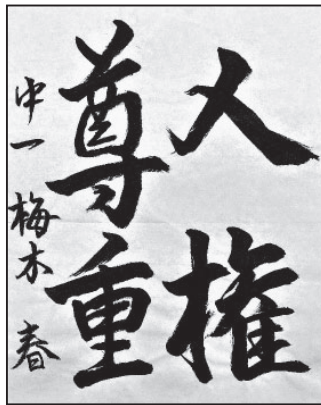 人権
尊重
中一 梅木 春